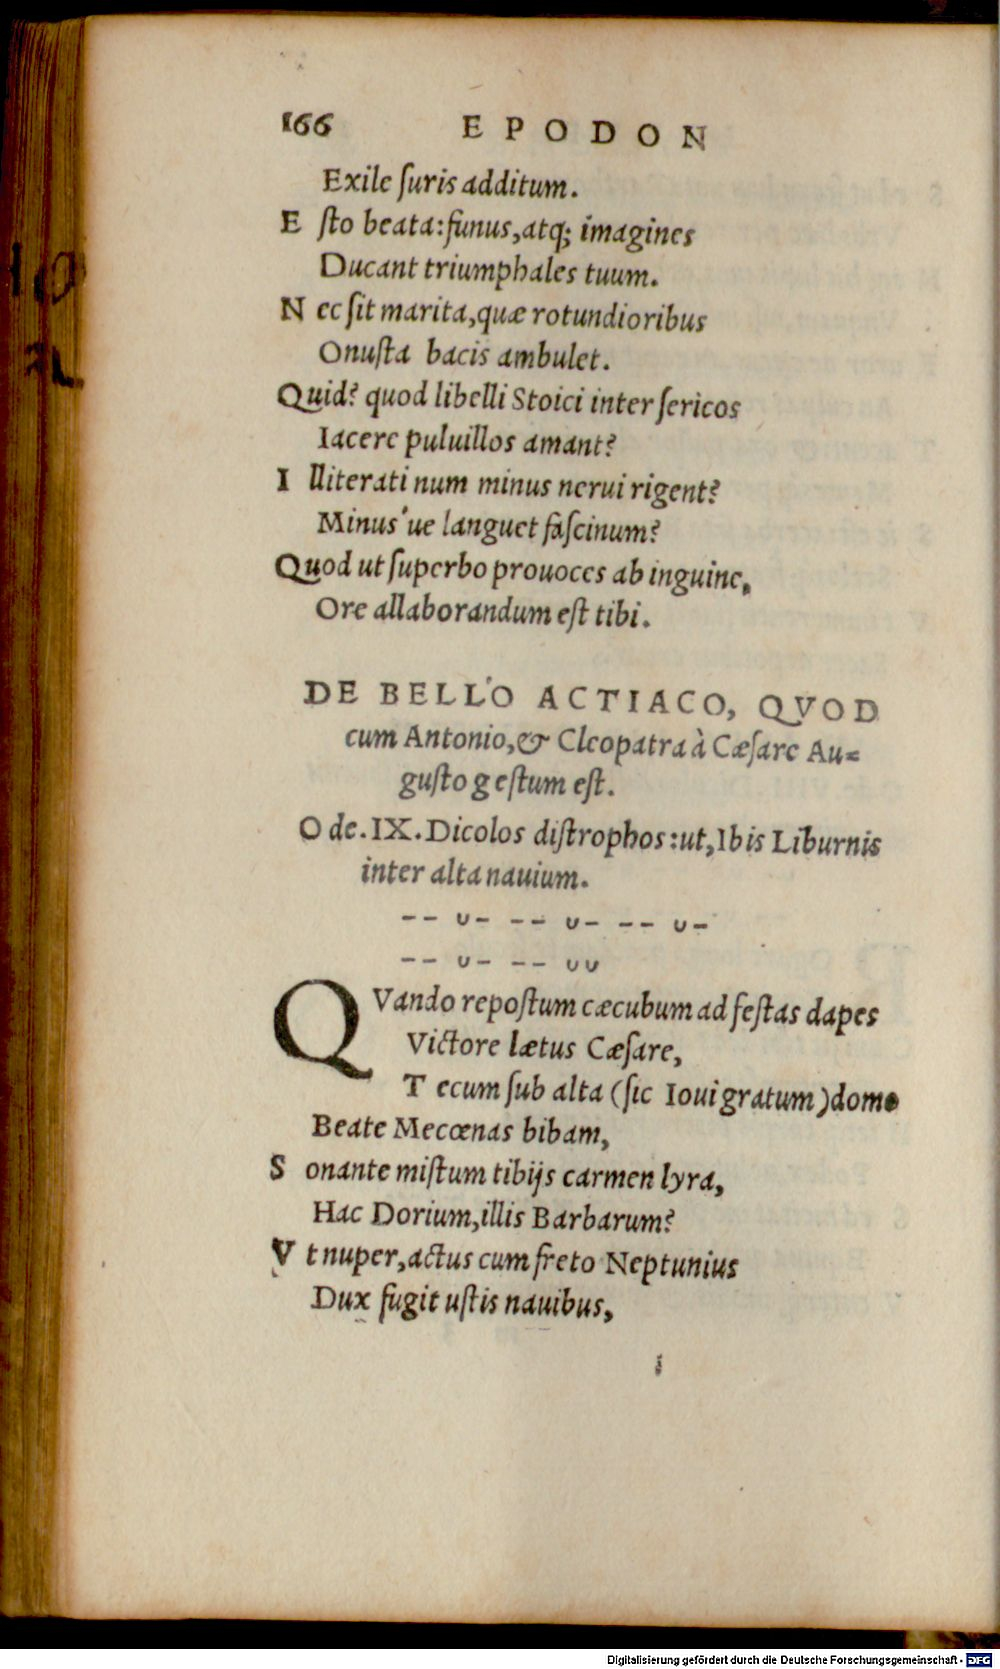 166 EPODON
Exile ſuris additum.
E ſto beata: funus, atq; imagines
Ducant triumphales tuum.
N ec ſit marita, quæ rotundioribus
Onuſta bacis ambulet.
Quid? quod libelli Stoici inter ſericos
Iacere puluillos amant?
I lliterati num minus nerui rigent?
Minus'ue languet faſcinum?
Quod ut ſuperbo prouoces ab inguine,
Ore allaborandum eſt tibi.
DE BELLO ACTIACO, QVOD
cum Antonio, & Cleopatra à Cæſare Au-
guſto geſtum eſt.
O de. IX. Dicolos diſtrophos: ut, Ibis Liburnis
inter alta nauium.
-- ᴗ- -- ᴗ- -- ᴗ-
-- ᴗ- -- ᴗᴗ
QVando repoſtum cæcubum ad feſtas dapes
Victore lætus Cæſare,
T ecum ſub alta (ſic Ioui gratum) domo
Beate Mecœnas bibam,
S onante miſtum tibijs carmen lyra,
Hac Dorium, illis Barbarum?
V t nuper, actus cum freto Neptunius
Dux fugit uſtis nauibus,
Digitalisierung gefördert durch die Deutsche Forschungsgemeinschaft - DFG